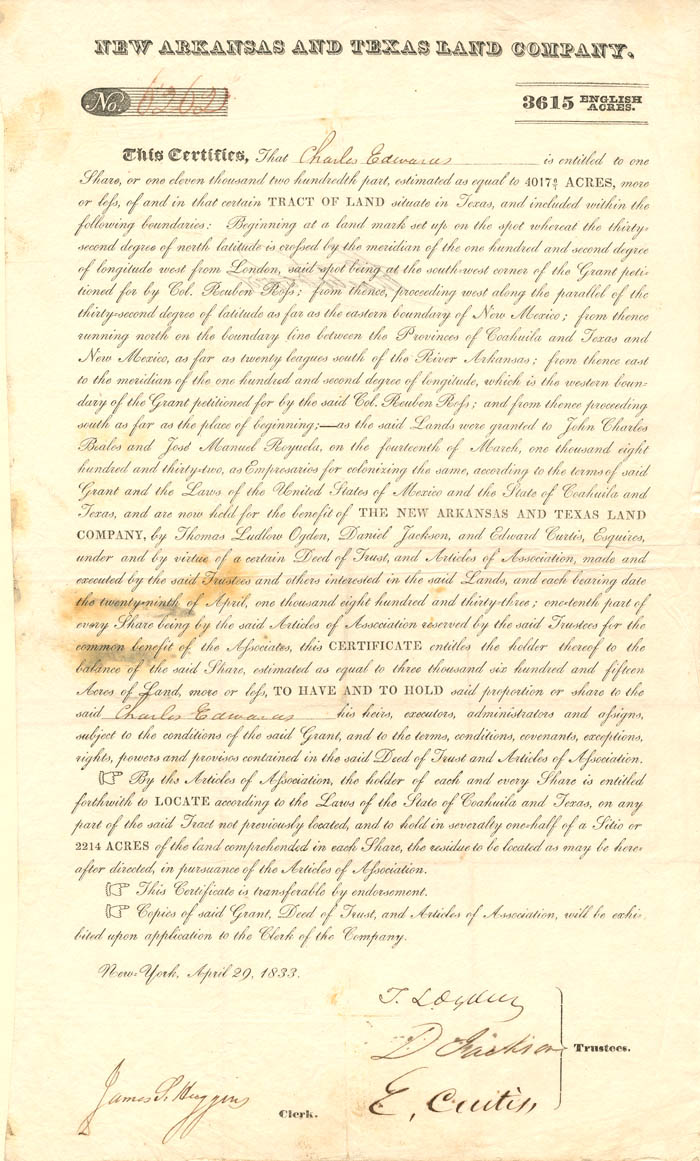 NEW ARKANSAS AND TEXAS LAND COMPANY.
No. 6262
3615 ENGLISH ACRES.
This Certifies, That Charles Edwards is entitled to one
Share, or one eleven thousand two hundredth part, estimated as equal to 4017 ACRES, more
or leſs, of and in that certain TRACT OF LAND situate in Texas, and included within the
following boundaries: Beginning at a land mark set up on the spot whereat the thirty-
second degree of north latitude is croſsed by the meridian of the one hundred and second degree
of longitude west from London, said spot being at the south-west corner of the Grant peti-
tioned for by Col. Reuben Roſs; from thence, proceeding west along the parallel of the
thirty-second degree of latitude as far as the eastern boundary of New Mexico; from thence
running north on the boundary line between the Provinces of Coahuila and Texas and
New Mexico, as far as twenty leagues south of the River Arkansas; from thence east
to the meridian of the one hundred and second degree of longitude, which is the western boun-
dary of the Grant petitioned for by the said Col. Reuben Roſs; and from thence proceeding
south as far as the place of beginning;—as the said Lands were granted to John Charles
Beales and José Manuel Royuela, on the fourteenth of March, one thousand eight
hundred and thirty-two, as Empresarios for colonizing the same, according to the terms of said
Grant and the Laws of the United States of Mexico and the State of Coahuila and
Texas, and are now held for the benefit of THE NEW ARKANSAS AND TEXAS LAND
COMPANY, by Thomas Ludlow Ogden, Daniel Jackson, and Edward Curtis, Esquires,
under and by virtue of a certain Deed of Trust, and Articles of Aſsociation, made and
executed by the said Trustees and others interested in the said Lands, and each bearing date
the twenty-ninth of April, one thousand eight hundred and thirty-three; one-tenth part of
every Share being by the said Articles of Aſsociation reserved by the said Trustees for the
common benefit of the Aſsociates, this CERTIFICATE entitles the holder thereof to the
balance of the said Share, estimated as equal to three thousand six hundred and fifteen
Acres of Land, more or leſs, TO HAVE AND TO HOLD said proportion or share to the
said Charles Edwards his heirs, executors, administrators and aſsigns,
subject to the conditions of the said Grant, and to the terms, conditions, covenants, exceptions,
rights, powers and provisos contained in the said Deed of Trust and Articles of Aſsociation.
☞ By the Articles of Aſsociation, the holder of each and every Share is entitled
forthwith to LOCATE according to the Laws of the State of Coahuila and Texas, on any
part of the said Tract not previously located, and to hold in severalty one-half of a Sitio or
2214 ACRES of the land comprehended in each Share, the residue to be located as may be here-
after directed, in pursuance of the Articles of Aſsociation.
☞ This Certificate is transferable by endorsement.
☞ Copies of said Grant, Deed of Trust, and Articles of Aſsociation, will be exhi-
bited upon application to the Clerk of the Company.
New-York, April 29, 1833.
T. L. Ogden
D Jackson
Trustees.
E. Curtis
James S. Huggins
Clerk.